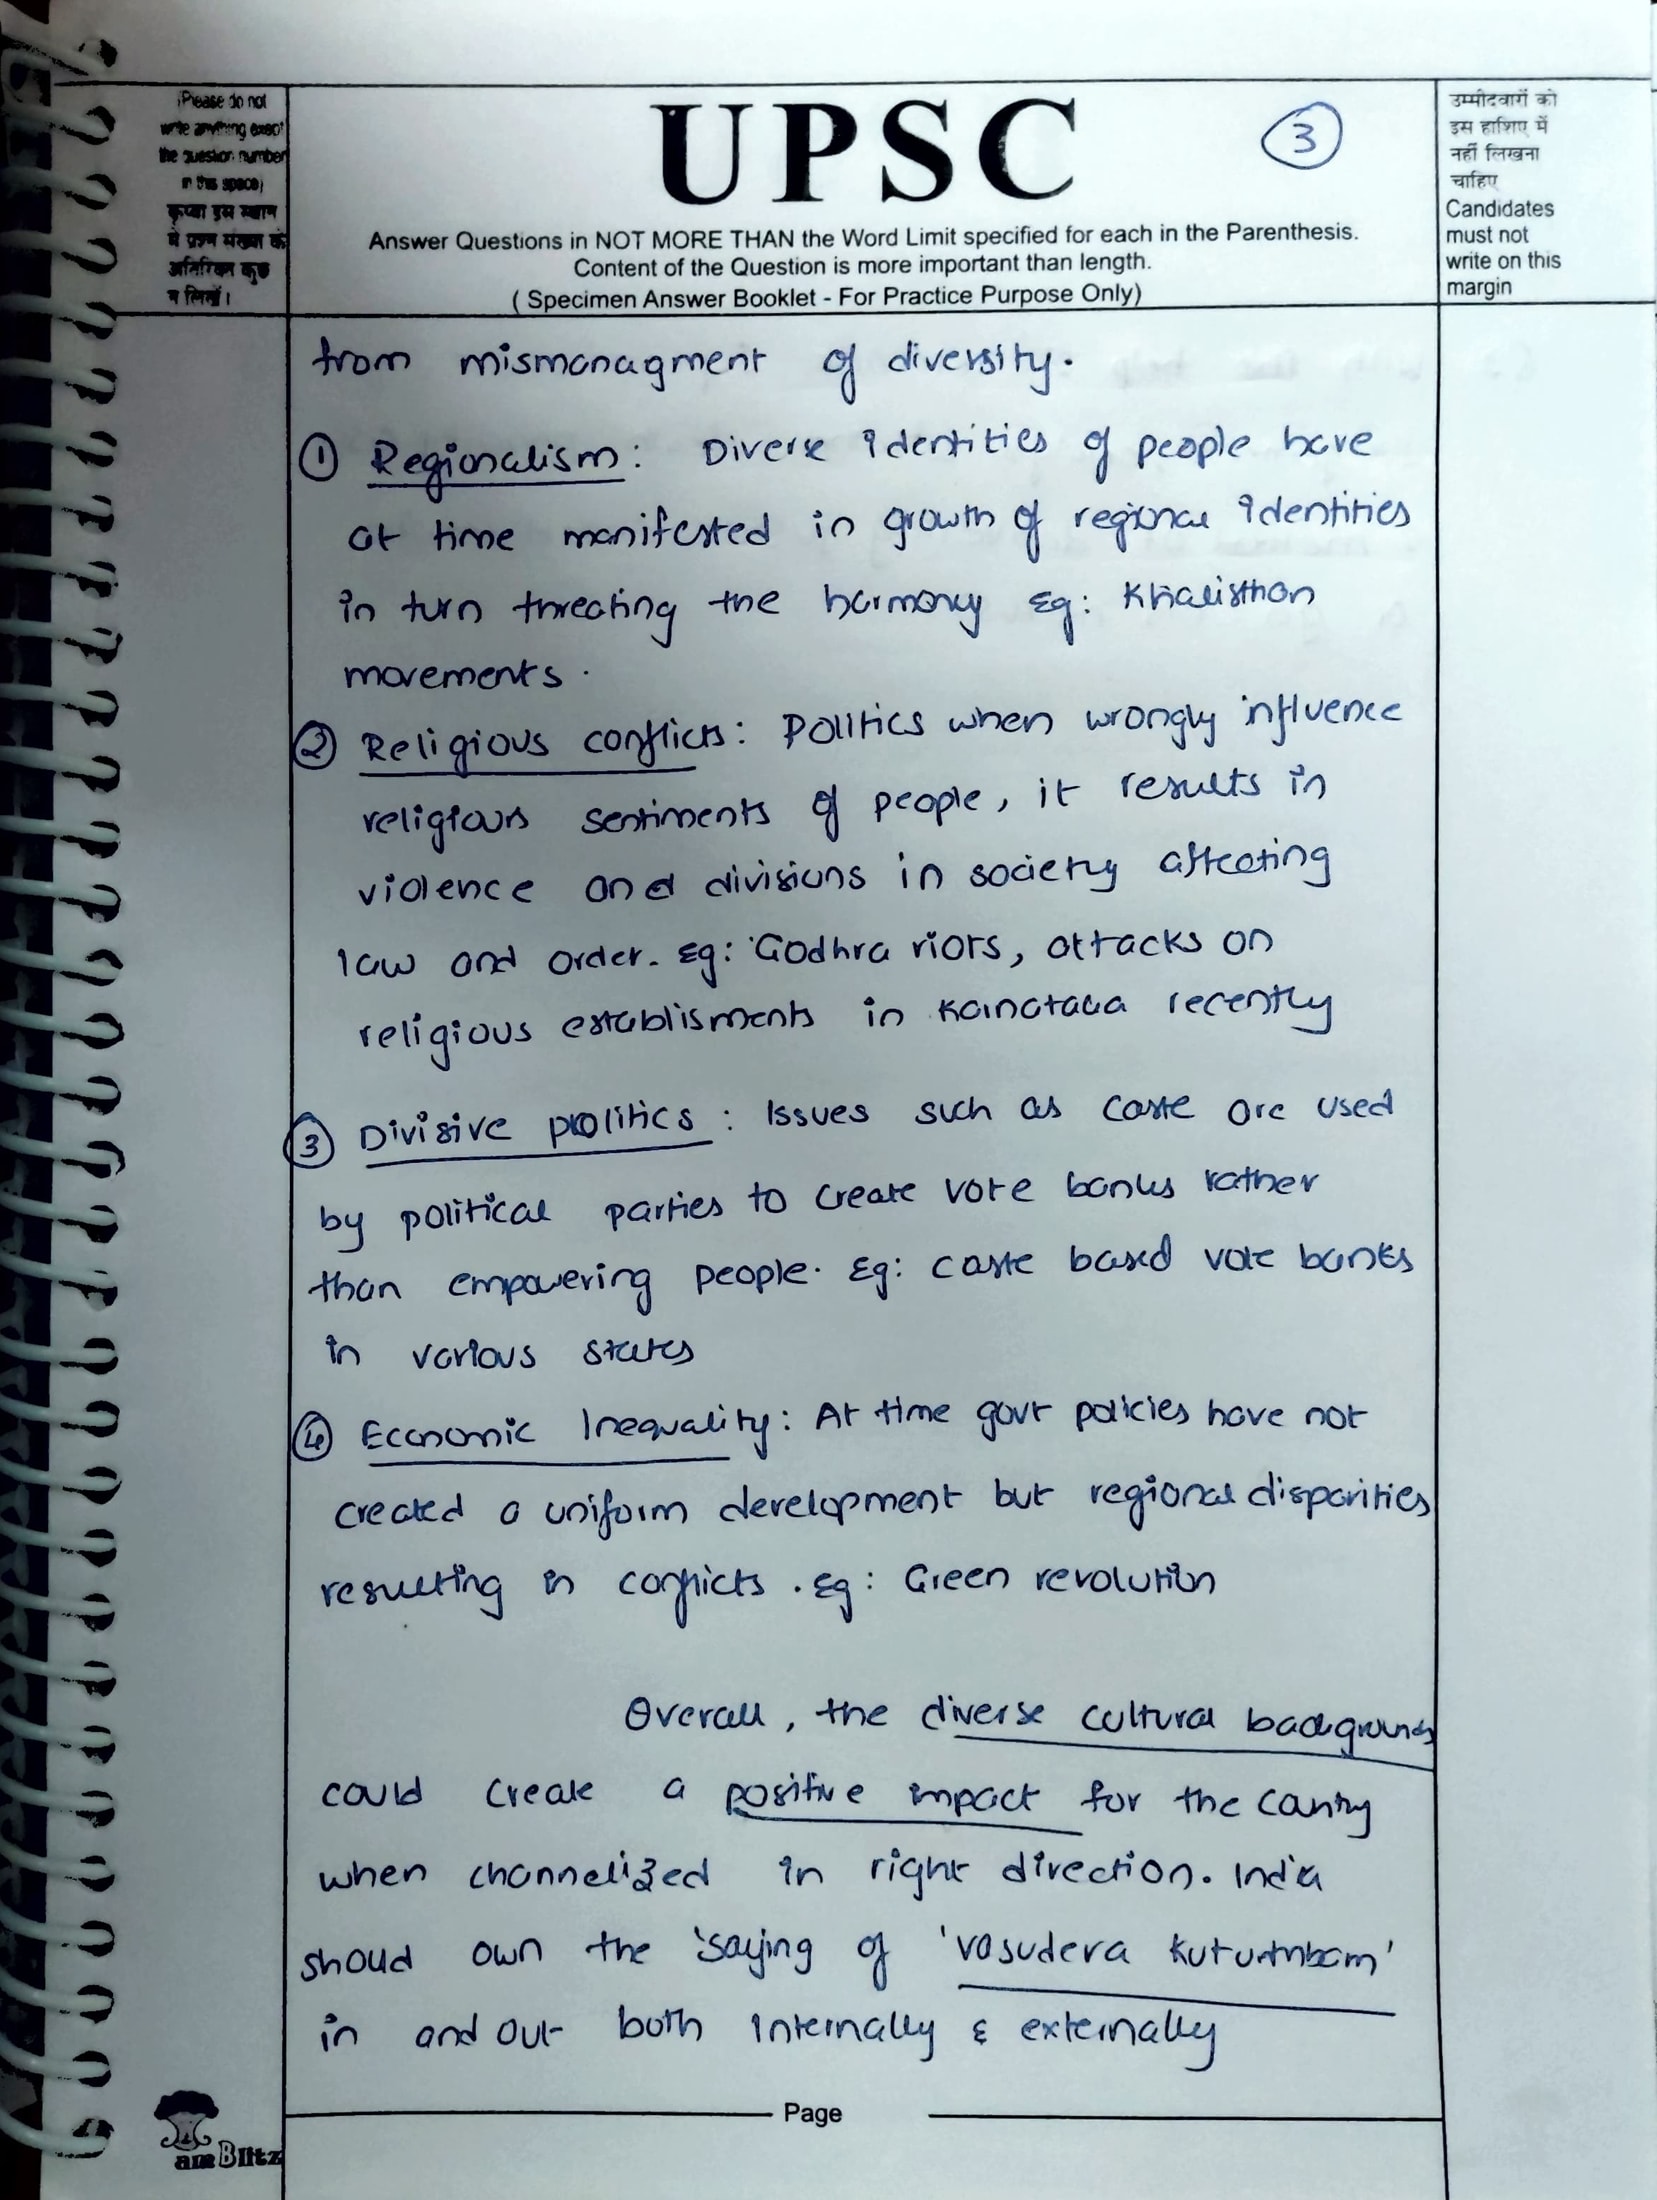 (Please do not
write anything except
the question number
in this space)
कृपया इस स्थान
में प्रश्न संख्या के
अतिरिक्त कुछ
न लिखें।
UPSC
3
Answer Questions in NOT MORE THAN the Word Limit specified for each in the Parenthesis.
Content of the Question is more important than length.
( Specimen Answer Booklet - For Practice Purpose Only)
उम्मीदवारों को
इस हाशिए में
नहीं लिखना
चाहिए
Candidates
must not
write on this
margin
from mismanagment of diversity.
① Regionalism: Diverse identities of people have
at time manifested in growth of regional identities
in turn threating the harmony eg: Khalisthan
movements.
② Religious conflicts: Politics when wrongly influence
religious sentiments of people, it results in
violence and divisions in society affecting
law and order. Eg: Godhra riots, attacks on
religious establisments in Karnataka recently
③ Divisive politics: Issues such as caste are used
by political parties to create vote banks rather
than empowering people. Eg: caste based vote banks
in various states
④ Economic Inequality: At time govt policies have not
created a uniform development but regional disparities
resulting in conflicts. eg: Green revolution
Overall, the diverse cultural backgrounds
could create a positive impact for the country
when channelized in right direction. India
should own the 'saying of 'vasudeva Kutumbam'
in and out both internally & externally
Page
amBlitz